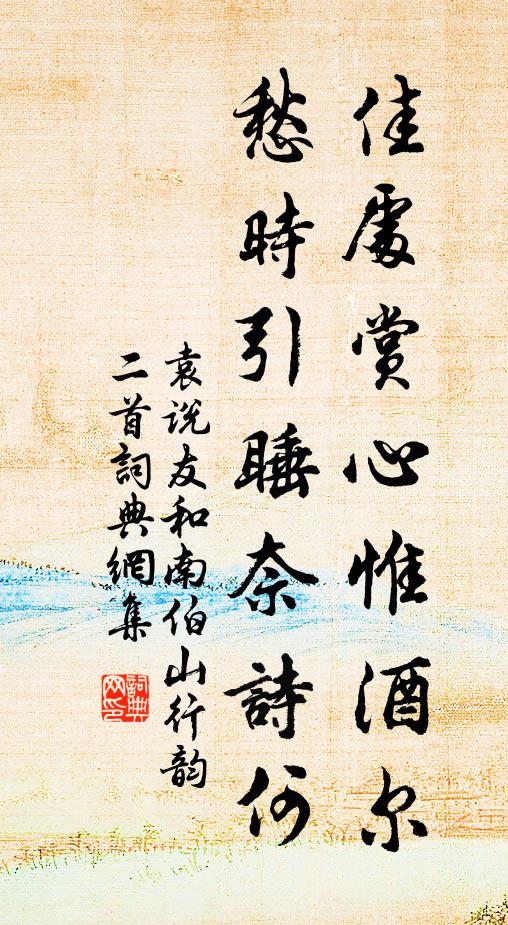 佳處賞心惟酒尔
愁時引睡奈詩何
袁说友和南伯山行韵
二首詞典網集
詞典网印